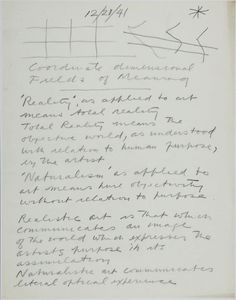 12/21/41
Coordinate dimensional
Fields of Meaning
"Reality", as applied to art
means total reality
Total Reality means the
objective world, as understood
with relation to human purpose,
by the artist.
"Naturalism" as applied to
art means pure objectivity
without relation to purpose.
Realistic art is that which
communicates an image
of the world which expresses the
artist's purpose in its
assimilation
Naturalistic art communicates
literal optical experience